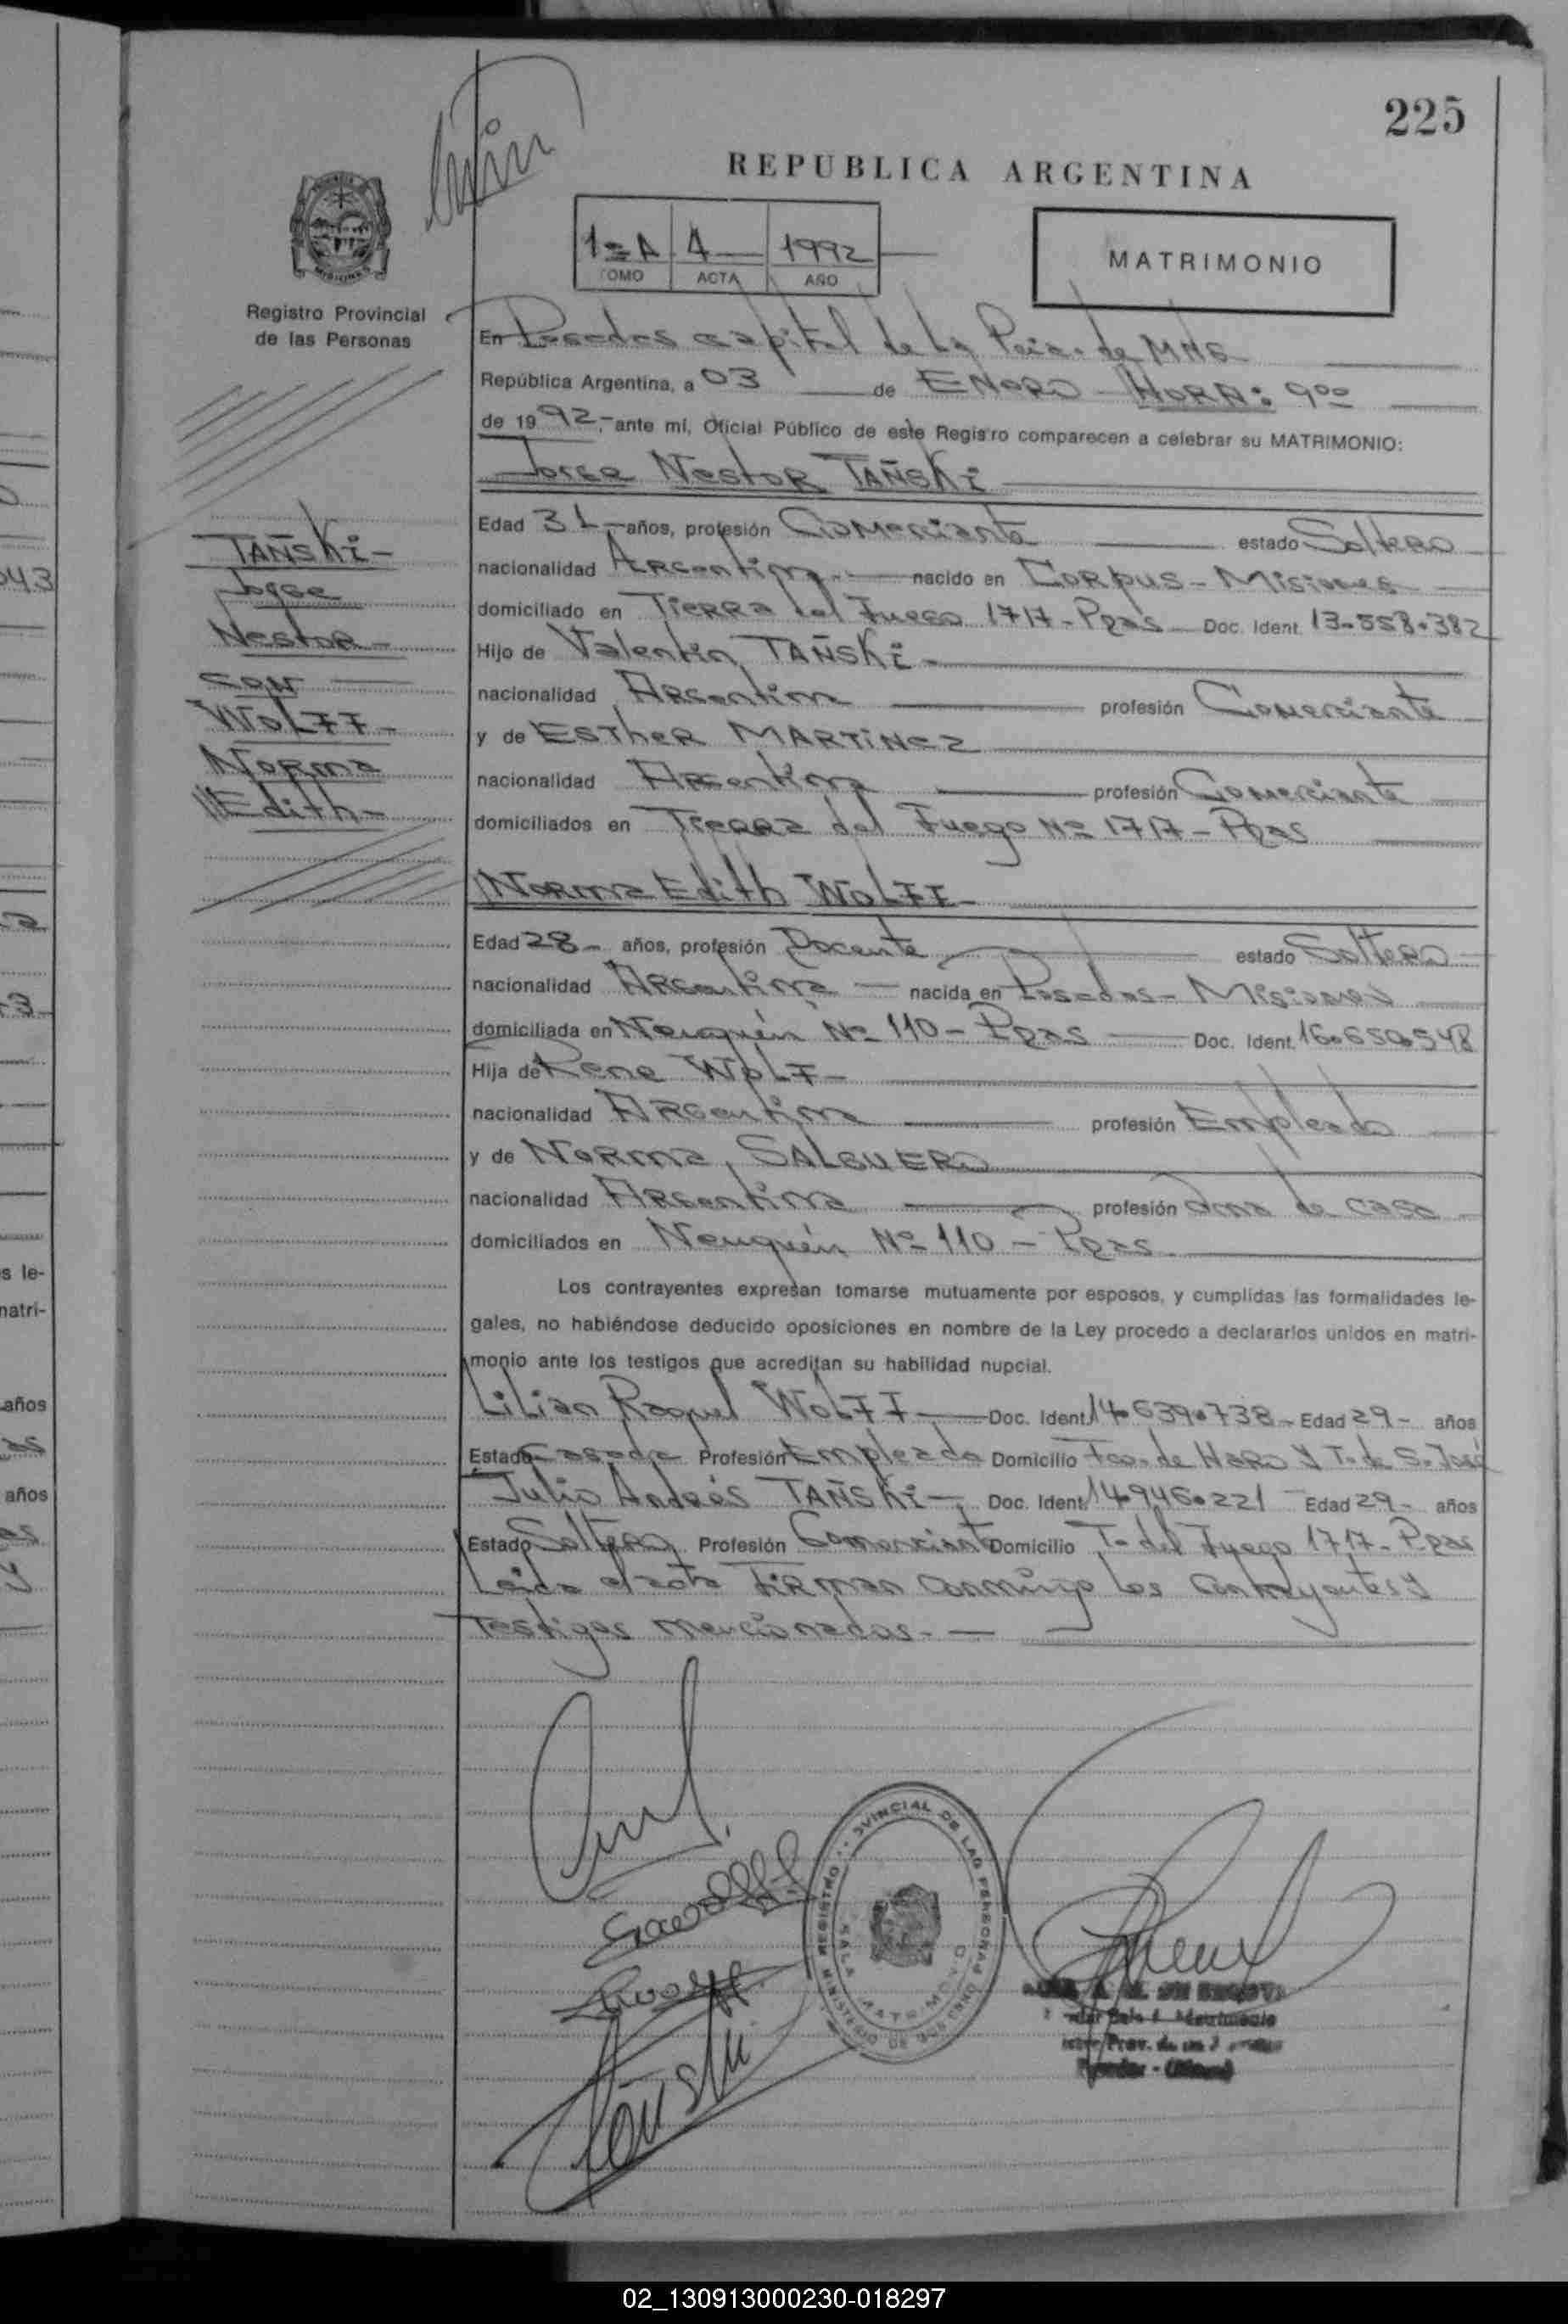 225
REPUBLICA ARGENTINA
1=A 4 1992
TOMO ACTA AÑO
MATRIMONIO
MISIONES
Registro Provincial
de las Personas
En Posadas capital de la Pcia. de Mnes
República Argentina, a 03 de ENERO - HORA: 9oo
de 1992,- ante mí, Oficial Público de este Registro comparecen a celebrar su MATRIMONIO:
Jorge Nestor TAÑSKi
Edad 31- años, profesión Comerciante estado Soltero
nacionalidad Argentina nacido en Corpus - Misiones
domiciliado en Tierra del Fuego 1717 - Pdas Doc. Ident. 13.558.382
Hijo de Valentin, TAÑSKi -
nacionalidad Argentina profesión Comerciante
y de ESTHER MARTINEZ
nacionalidad Argentina profesión Comerciante
domiciliados en Tierra del Fuego Nº 1717 - Pdas
TAÑSKi -
Jorge
Nestor -
con
WOLFF -
Norma
Edith -
Norma Edith WOLFF -
Edad 28 - años, profesión Docente estado Soltera
nacionalidad Argentina nacida en Posadas - Misiones
domiciliada en Neuquén Nº 110 - Pdas Doc. Ident. 16.650.548
Hija de Rene WOLF -
nacionalidad Argentina profesión Empleado
y de Norma, SALGUERO
nacionalidad Argentina profesión Ama de casa
domiciliados en Neuquén Nº 110 - Pdas.
Los contrayentes expresan tomarse mutuamente por esposos, y cumplidas las formalidades le-
gales, no habiéndose deducido oposiciones en nombre de la Ley procedo a declararlos unidos en matri-
monio ante los testigos que acreditan su habilidad nupcial.
Lilian Raquel WOLFF Doc. Ident. 14.639.738 - Edad 29 - años
Estado Casada Profesión Empleada Domicilio Fco. de Haro y T. de S. José
Julio Andrés TAÑSKi - Doc. Ident. 14.946.221 - Edad 29 - años
Estado Soltero Profesión Comerciante Domicilio T. del Fuego 1717 - Pdas
Leida el acta firman conmigo los contrayentes y
testigos mencionados. -
REGISTRO PROVINCIAL DE LAS PERSONAS
MINISTERIO DE GOBIERNO
Tañski
Matrimonio
s le-
natri-
años
años
02_130913000230-018297